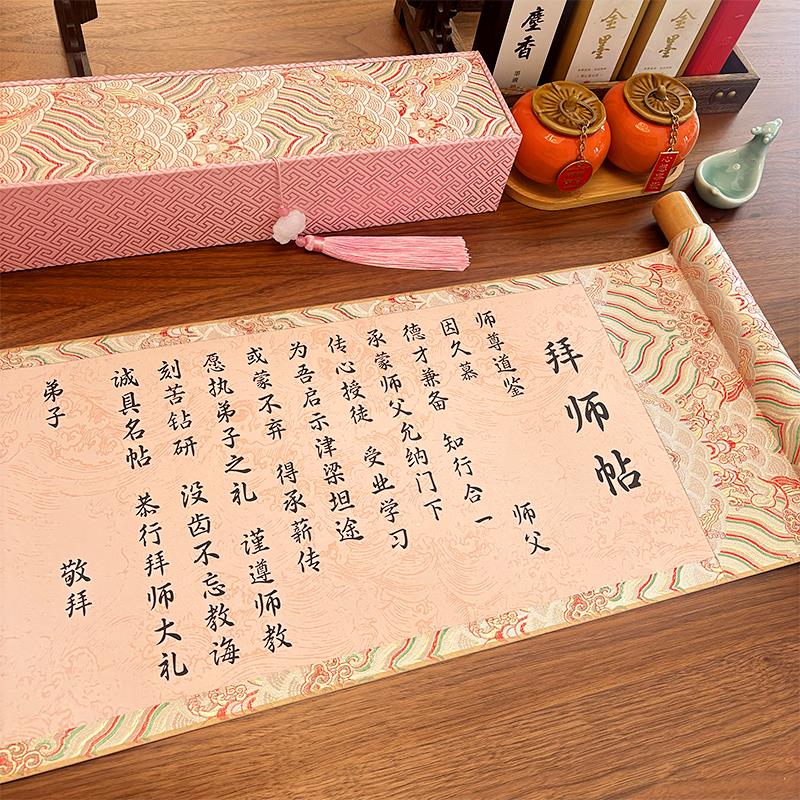 拜师帖
师尊道鉴
因久慕 师父
德才兼备 知行合一
承蒙师父允纳门下
传心授徒 受业学习
为吾启示津梁坦途
或蒙不弃 得承薪传
愿执弟子之礼 谨遵师教
刻苦钻研 没齿不忘教诲
诚具名帖 恭行拜师大礼
弟子 敬拜
麝香
金墨
金墨